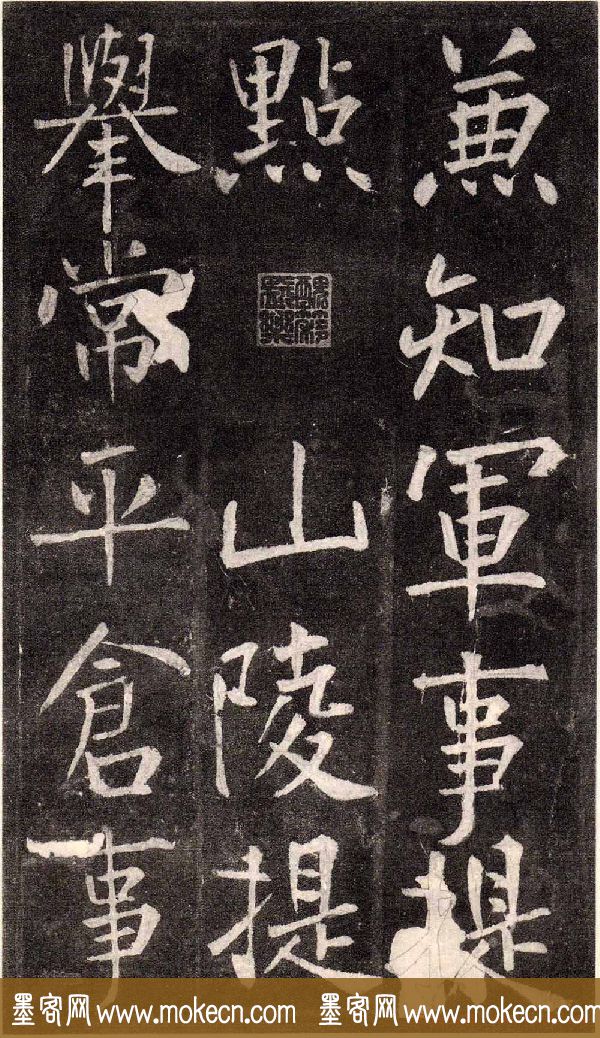 兼知軍事提
點山陵提
舉常平倉事
墨客网 www.mokecn.com 墨客网 www.mokecn.com